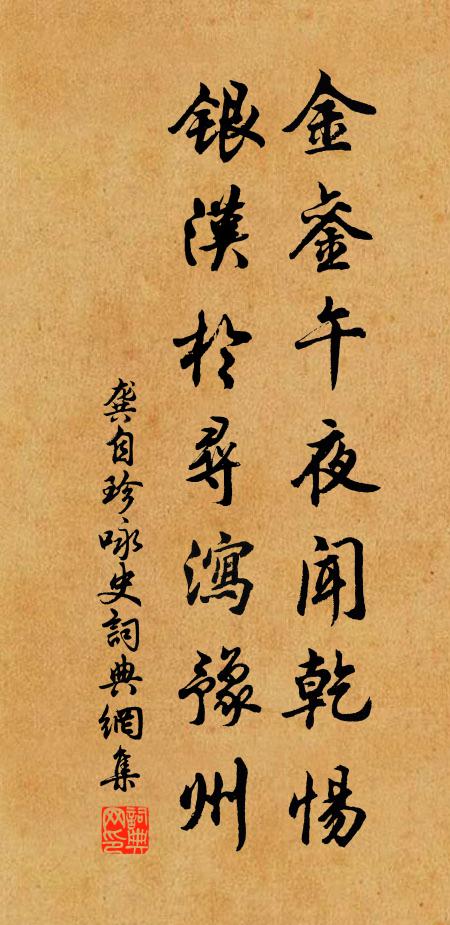 金銮午夜聞乾惕
銀漢於尋瀉豫州
龚自珍咏史詞典網集
詞典网印